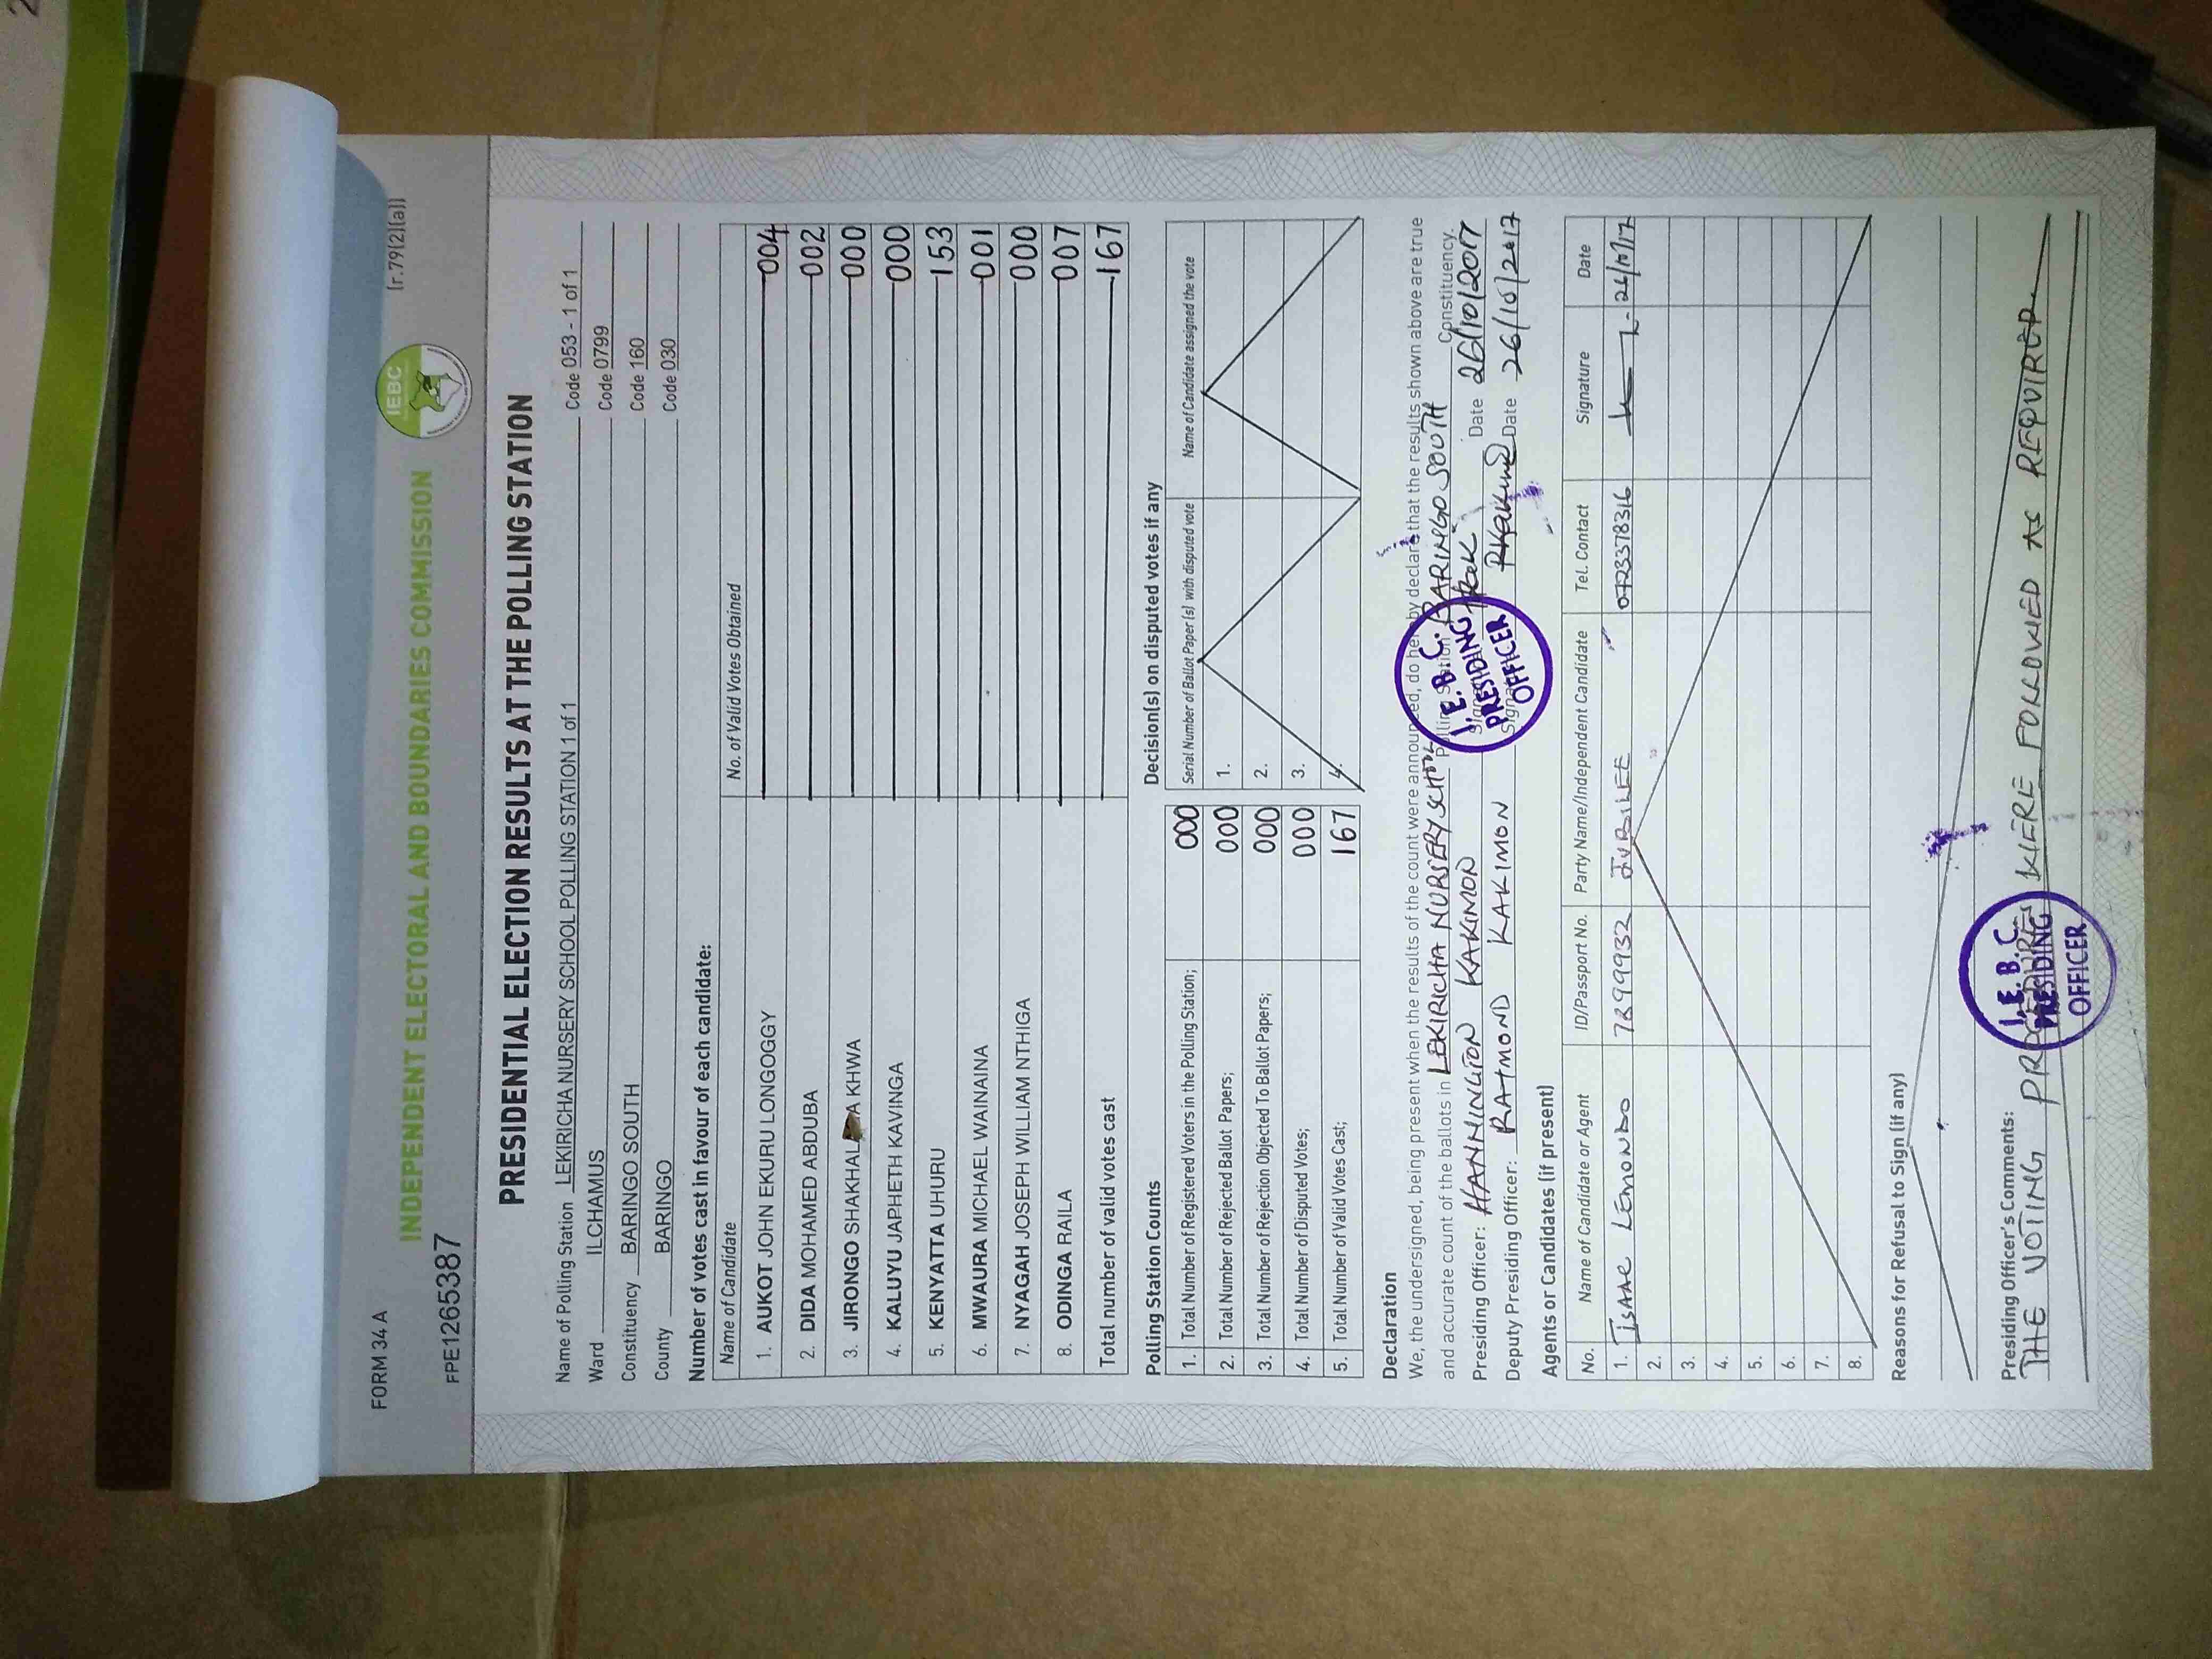 FORM 34 A
(r.79(2)(a))
INDEPENDENT ELECTORAL AND BOUNDARIES COMMISSION
IEBC
FPE1265387
PRESIDENTIAL ELECTION RESULTS AT THE POLLING STATION
Name of Polling Station LEKIRICHA NURSERY SCHOOL POLLING STATION 1 of 1 Code 053 - 1 of 1
Ward ILCHAMUS Code 0799
Constituency BARINGO SOUTH Code 160
County BARINGO Code 030
Number of votes cast in favour of each candidate:
Name of Candidate No. of Valid Votes Obtained
1. AUKOT JOHN EKURU LONGOGGY 004
2. DIDA MOHAMED ABDUBA 002
3. JIRONGO SHAKHALA KHWA 000
4. KALUYU JAPHETH KAVINGA 000
5. KENYATTA UHURU 153
6. MWAURA MICHAEL WAINAINA 001
7. NYAGAH JOSEPH WILLIAM NTHIGA 000
8. ODINGA RAILA 007
Total number of valid votes cast 167
Polling Station Counts
1. Total Number of Registered Voters in the Polling Station; 000
2. Total Number of Rejected Ballot Papers; 000
3. Total Number of Rejection Objected To Ballot Papers; 000
4. Total Number of Disputed Votes; 000
5. Total Number of Valid Votes Cast; 167
Decision(s) on disputed votes if any
Serial Number of Ballot Paper (s) with disputed vote Name of Candidate assigned the vote
1.
2.
3.
4.
Declaration
We, the undersigned, being present when the results of the count were announced, do hereby declare that the results shown above are true
and accurate count of the ballots in LEKIRICHA NURSERY SCHOOL Polling station BARINGO SOUTH Constituency.
Presiding Officer: HANNINGTON KAKIMON Date 26/10/2017
Deputy Presiding Officer: RAYMOND KAKIMON Date 26/10/2017
I.E.B.C. PRESIDING OFFICER
Agents or Candidates (if present)
No. Name of Candidate or Agent ID/Passport No. Party Name/Independent Candidate Tel. Contact Signature Date
1. ISAAC LEMONDO 7899932 JUBILEE 0723378316 26/10/17
2.
3.
4.
5.
6.
7.
8.
Reasons for Refusal to Sign (if any)
Presiding Officer's Comments:
THE VOTING PROCEDURES WERE FOLLOWED AS REQUIRED
I.E.B.C. PRESIDING OFFICER